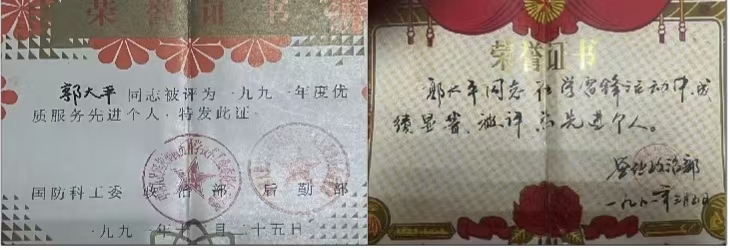 荣誉证书
郭大平 同志被评为一九九一年度优
质服务先进个人，特发此证。
国防科工委 政治部 后勤部
一九九一年十一月二十五日
荣誉证书
郭大平同志在学雷锋活动中，成
绩显著，被评为先进个人。
政治部